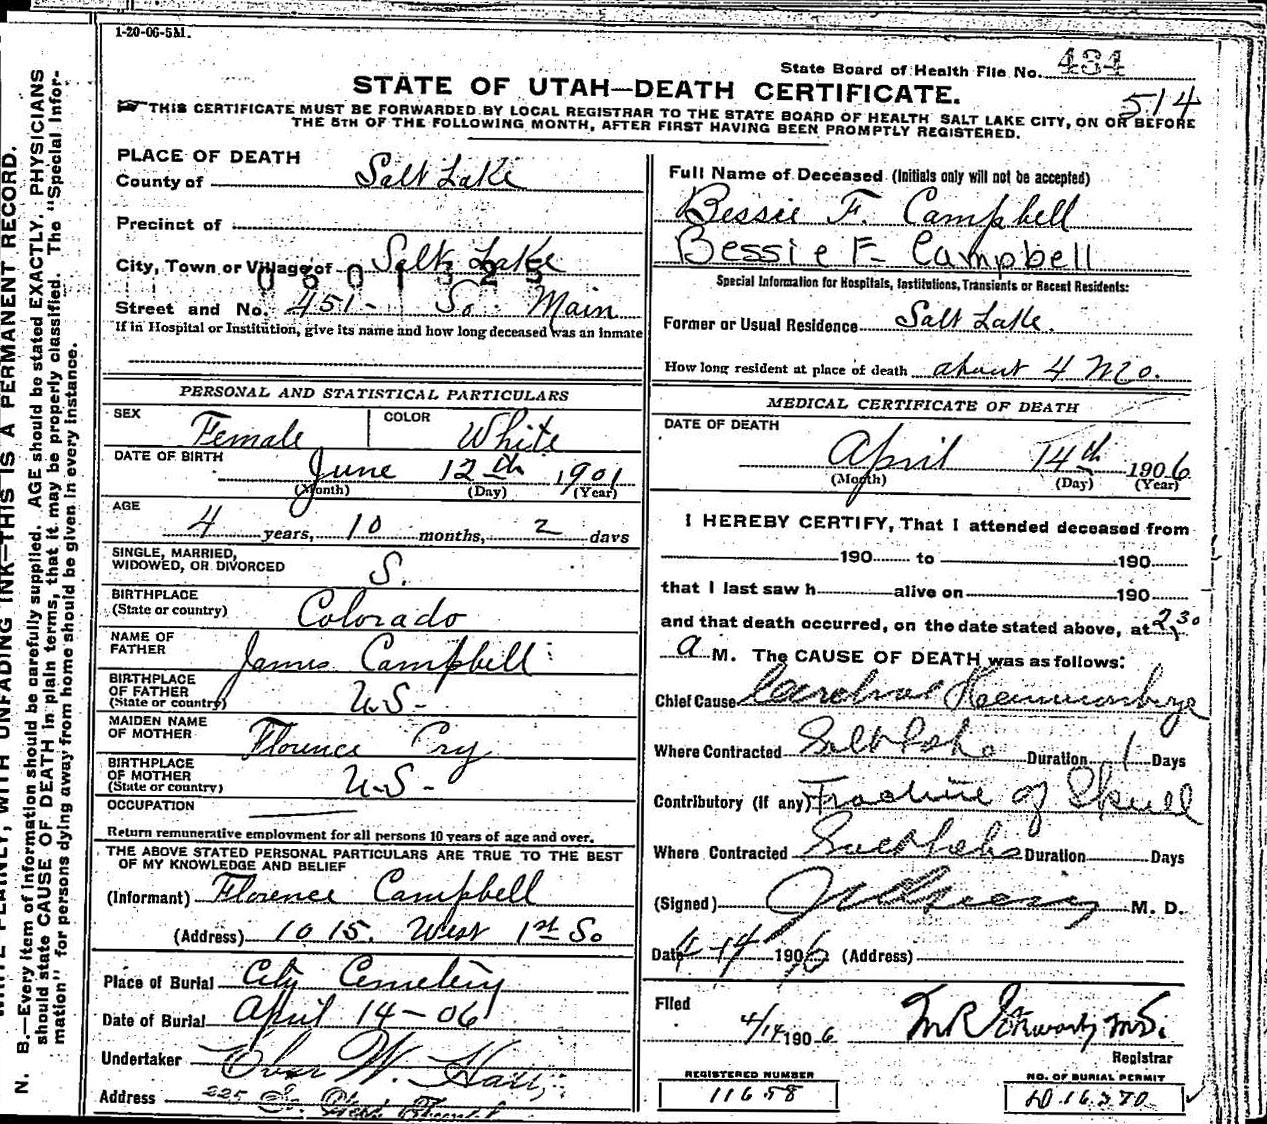 1-20-06-5M.
State Board of Health File No. 434
514
STATE OF UTAH—DEATH CERTIFICATE.
THIS CERTIFICATE MUST BE FORWARDED BY LOCAL REGISTRAR TO THE STATE BOARD OF HEALTH SALT LAKE CITY, ON OR BEFORE
THE 5TH OF THE FOLLOWING MONTH, AFTER FIRST HAVING BEEN PROMPTLY REGISTERED.
N. B.—Every item of information should be carefully supplied. AGE should be stated EXACTLY. PHYSICIANS
should state CAUSE OF DEATH in plain terms, that it may be properly classified. The "Special Infor-
mation" for persons dying away from home should be given in every instance.
WITH UNFADING INK—THIS IS A PERMANENT RECORD.
PLACE OF DEATH
County of Salt Lake
Precinct of
City, Town or Village of Salt Lake
0601325
Street and No. 451- So. Main
If in Hospital or Institution, give its name and how long deceased was an inmate
PERSONAL AND STATISTICAL PARTICULARS
SEX Female COLOR White
DATE OF BIRTH June 12th 1901
(Month) (Day) (Year)
AGE
4 years, 10 months, 2 days
SINGLE, MARRIED,
WIDOWED, OR DIVORCED S.
BIRTHPLACE
(State or country) Colorado
NAME OF
FATHER James Campbell
BIRTHPLACE
OF FATHER
(State or country) U.S-
MAIDEN NAME
OF MOTHER Florence Cry
BIRTHPLACE
OF MOTHER
(State or country) U-S-
OCCUPATION
Return remunerative employment for all persons 10 years of age and over.
THE ABOVE STATED PERSONAL PARTICULARS ARE TRUE TO THE BEST
OF MY KNOWLEDGE AND BELIEF
(Informant) Florence Campbell
(Address) 1015. West 1st So
Place of Burial City Cemetery
Date of Burial April 14-06
Undertaker W. Hall
Address 225 So.
Full Name of Deceased (Initials only will not be accepted)
Bessie F. Campbell
Bessie F- Campbell
Special Information for Hospitals, Institutions, Transients or Recent Residents:
Former or Usual Residence Salt Lake.
How long resident at place of death about 4 Mo.
MEDICAL CERTIFICATE OF DEATH
DATE OF DEATH
April 14th 1906
(Month) (Day) (Year)
I HEREBY CERTIFY, That I attended deceased from
190 to 190
that I last saw h alive on 190
and that death occurred, on the date stated above, at 2,30
a M. The CAUSE OF DEATH was as follows:
Chief Cause Cerebral Hemmorhage
Where Contracted Salt Lake Duration 1 Days
Contributory (if any) Fracture of Skull
Where Contracted Salt Lake Duration Days
(Signed) M. D.
Date 4-14 1906 (Address)
Filed
4/14 1906
Registrar
REGISTERED NUMBER
11658
NO. OF BURIAL PERMIT